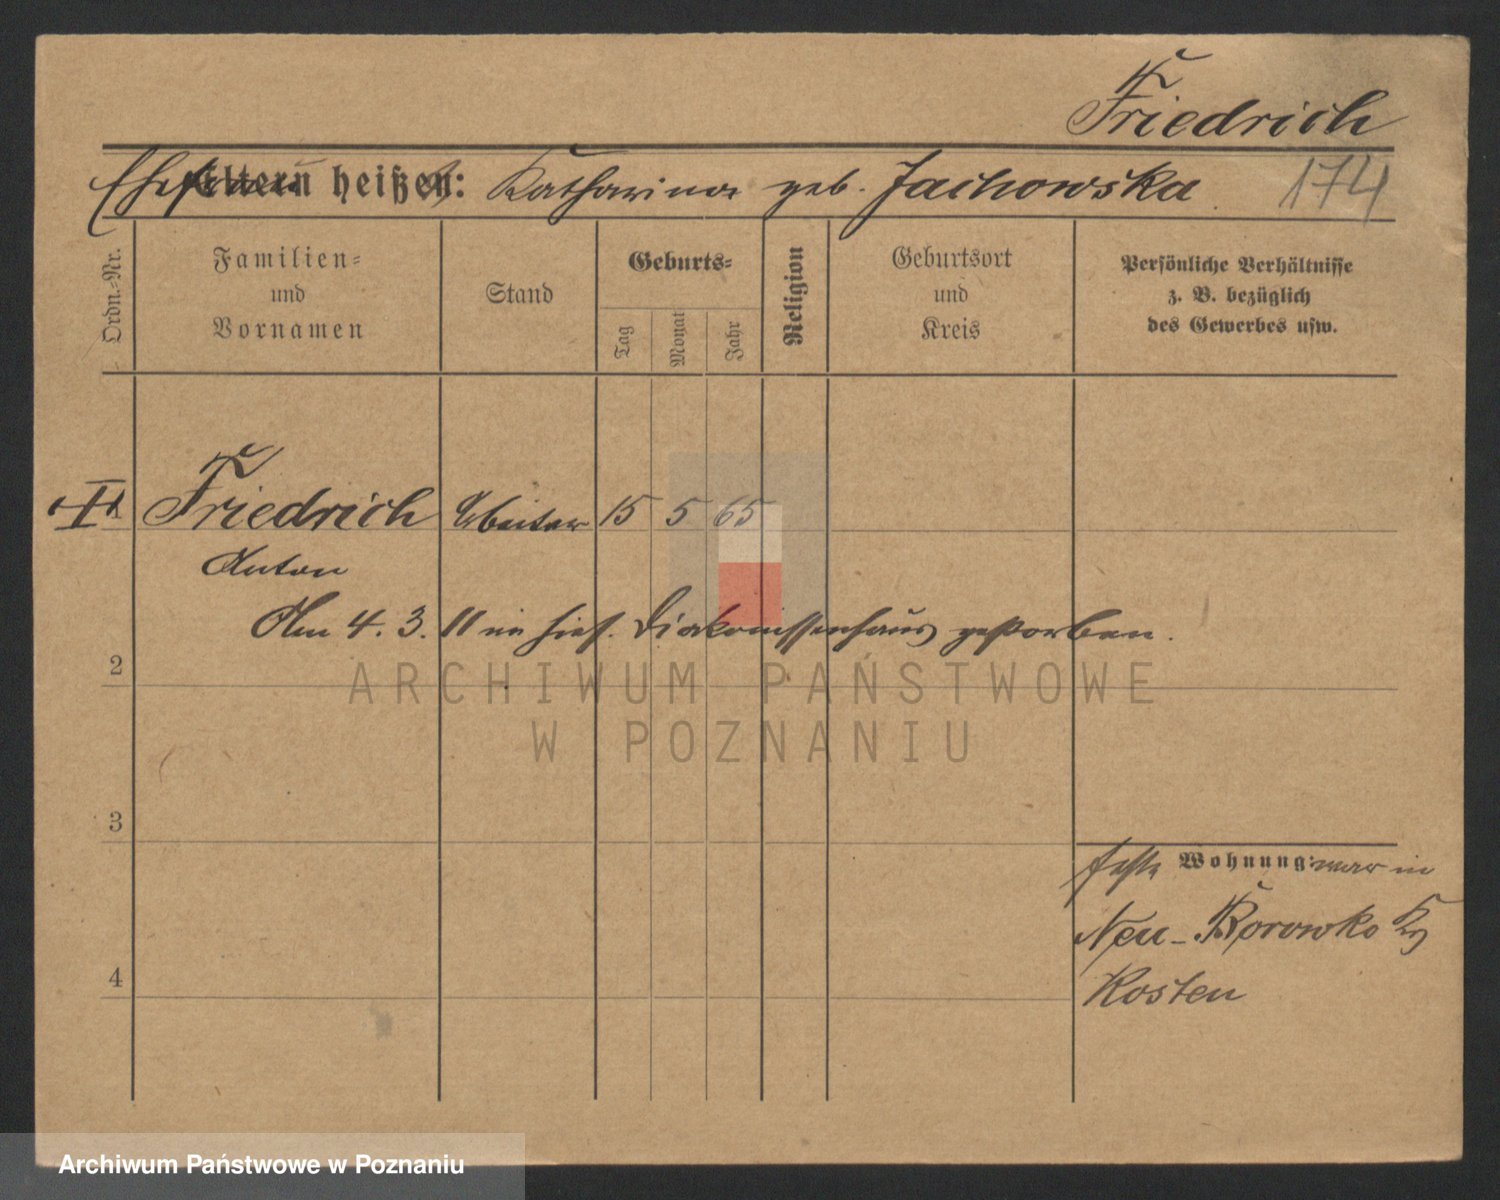 Friedrich
Ehefrau Eltern heißen: Katharina geb. Jachowska
174
Ordn.-Nr.
Familien-
und
Vornamen
Stand
Geburts-
Tag
Monat
Jahr
Religion
Geburtsort
und
Kreis
Persönliche Verhältnisse
z. B. bezüglich
des Gewerbes usw.
1
Friedrich Arbeiter 15 5 65
Anton
Am 4. 3. 11 im hies. Diakonissenhaus gestorben.
2
ARCHIWUM PAŃSTWOWE
W POZNANIU
3
4
feste Wohnung: war in
Neu-Borowko Kr
Kosten
Archiwum Państwowe w Poznaniu